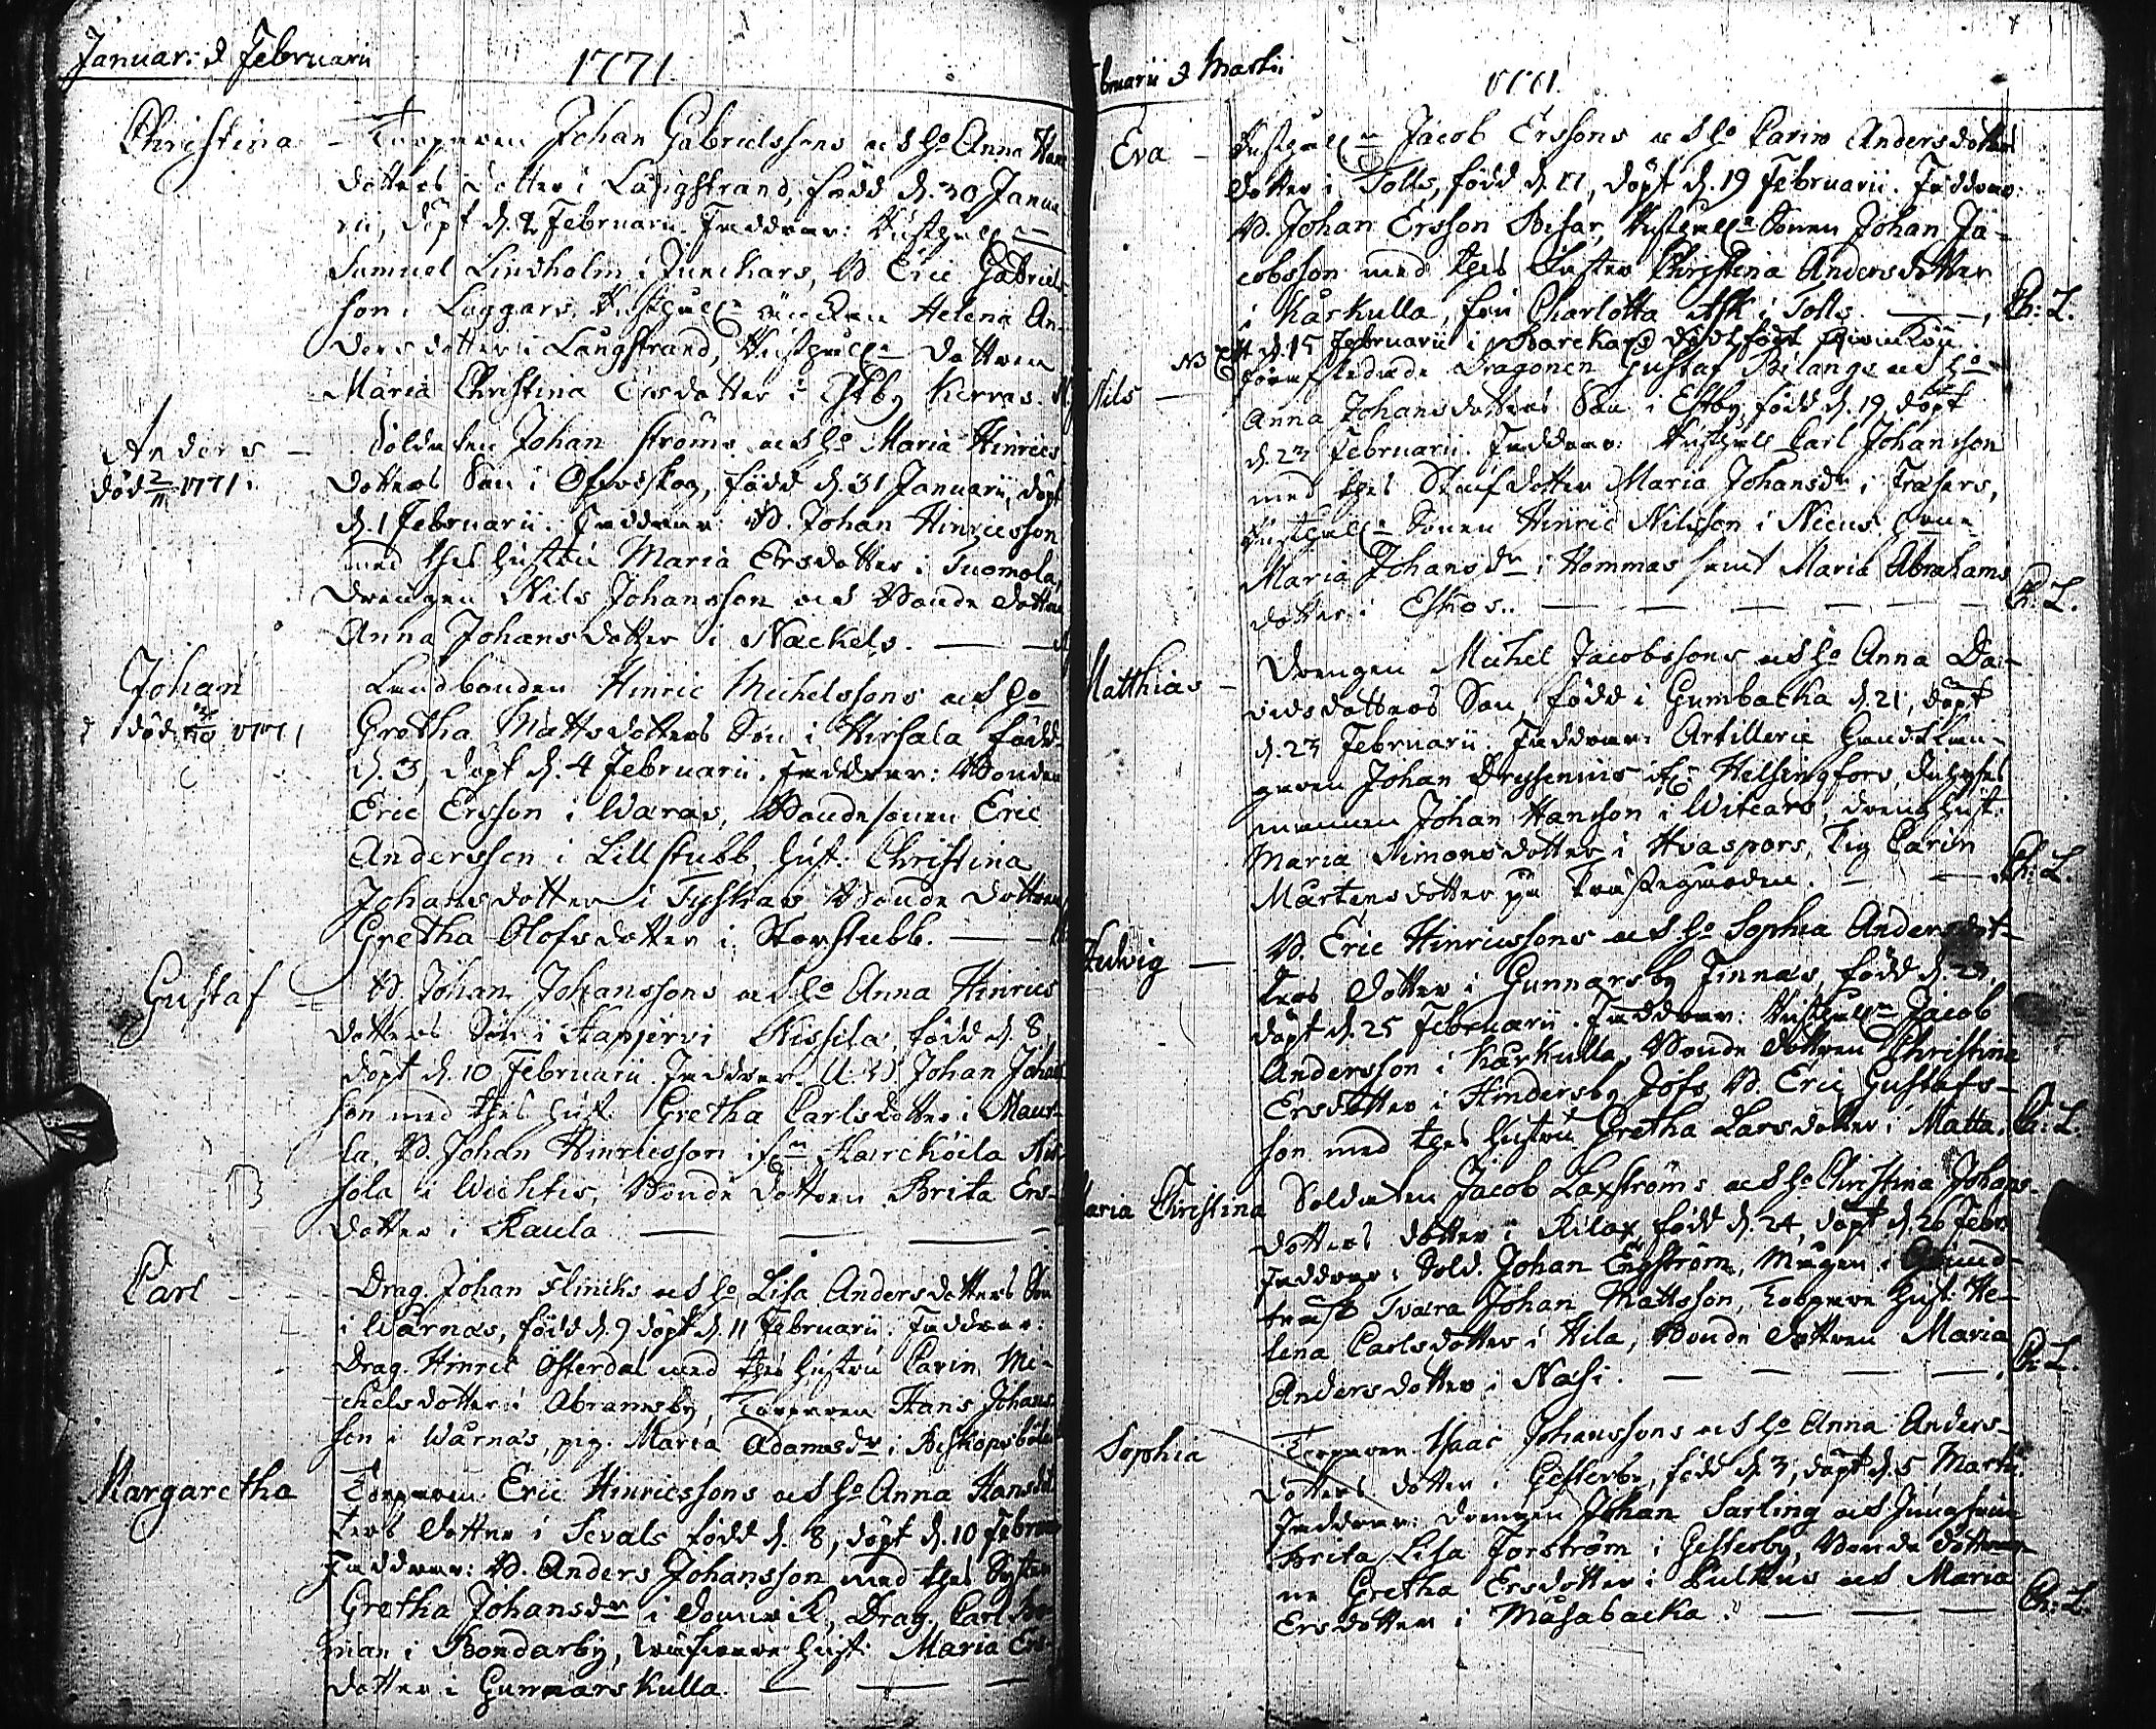 Januari & Februarii
1771
Christina – Torparen Johan Gabrielssons och H:o Anna Hans
dotters dotter i Långstrand, född d. 30 Janua-
rii, döpt d. 2 Februarii. Faddrar:
Samuel Lindholm i Junckars, B. Eric Gabriels-
son i Laggars, Änckan Helena An-
ders dotter i Långstrand, dottren
Maria Christina Ersdotter i Estby Kerras.
Anders – Soldaten Johan Ströms och H:o Maria Hinrics
död 2/11 1771.
dotters Son i Öfverskog, född d. 31 Januarii, döpt
d. 1 Februarii. Faddrar: B. Johan Hinricsson
med thes hustru Maria Ersdotter i Tuomola,
Drengen Nils Johansson och Bonde dottren
Anna Johans dotter i Nackels.
Johan Landbonden Hinric Michelssons och H:o
död 1771
Gretha Matts dotters Son i Hirsala född
d. 3, döpt d. 4 Februarii. Faddrar: Bonden
Eric Ersson i Waras, Bondesonen Eric
Andersson i Lillstubb, hust. Christina
Johansdotter i Tyskas Bonde dottren
Gretha Olofsdotter i Storstubb.
Gustaf – B. Johan Johanssons och H:o Anna Hinrics
dotters Son i Haapjervi Nissila, född d. 8,
döpt d. 10 Februarii. Faddrar. U. B. Johan Johans
son med thes hust. Gretha Carlsdotter i Maus-
la, B. Johan Hinricsson ifrån Harcköila Nis-
sola i Wichtis, Bonde dottren Brita Ers-
dotter i Kaula
Carl – Drag. Johan Flinks och H:o Lisa Andersdotters Son
i Wårnäs, född d. 9 döpt d. 11 Februarii. Faddrar:
Drag. Hinric Österdal med thes hustru Carin Mi-
chelsdotter i Abramsby, Torparen Hans Johans
son i Wårnäs, pig. Maria Adamsdr i Biskopsböle
Margaretha Torparen Eric Hinricssons och H:o Anna Hansdot
ters dotter i Sevals född d. 8, döpt d. 10 Februarii
Faddrar: B. Anders Johansson med thes Syster
Gretha Johansdr i Domwik, Drag. Carl
man i Bondarby, hust. Maria Ers-
dotter i Gunnarskulla.
bruarii & Martii
1771.
Eva – Jacob Erssons och H:o Carin Andersdotters
dotter i Tolls, född d. 17, döpt d. 19 Februarii. Faddrar:
B. Johan Ersson Bisar, Sonen Johan Ja-
cobsson med thes Syster Christina Andersdotter
i Karkulla, fru Charlotta Ask i Tolls. Ch: L.
NB Ett d. 15 Februarii i Barckars dödtfödt Qvinkön.
Nils – Förafskedade Dragonen Gustaf Bilangs och H:o
Anna Johansdotters Son i Estby, född d. 19, döpt
d. 23 Februarii. Faddrar: Carl Johansson
med thes Stiufdotter Maria Johansdr i Träsars,
Sonen Hinric Nilsson i Nicus
Maria Johansdr i Hommas samt Maria Abrahams
dotter i Estkos. Ch: L.
Matthias – Drengen Michel Jacobssons och H:o Anna Da-
vidsdotters Son, född i Gumbacka d. 21, döpt
d. 23 Februarii. Faddrar: Artillerie Handtlan-
garen Johan Dryssenius ifr: Helsingfors,
mannen Johan Hansson i Witcars, Dreng hust.
Maria Simonsdotter i Hvaspors, Pig Carin
Mårtensdotter på Prästegården. Ch: L.
Hedvig – B. Eric Hinricssons och H:o Sophia Andersdot-
ters dotter i Gunnarsby Finnäs, född d. 23,
döpt d. 25 Februarii. Faddrar: Jacob
Andersson i Karkulla, Bonde dottren Christina
Ersdotter i Hindersby Jofs, B. Eric Gustafs-
son med thes hustru Gretha Larsdotter i Matta. Ch: L.
Maria Christina Soldaten Jacob Laxströms och H:o Christina Johans-
dotters dotter i Kilax född d. 24, döpt d. 26 Febr.
Faddrar: Sold. Johan Engström, Mågen i Grund-
träsk Tvära Johan Mattsson, Torpare hust. He-
lena Carlsdotter i Hila, Bonde dottren Maria
Andersdotter i Nasi. Ch: L.
Sophia Torparen Isaac Johanssons och H:o Anna Anders-
dotters dotter i Gesterby, född d. 3, döpt d. 5 Martii.
Faddrar: Drengen Johan Sarling och Jungfrun
Brita Lisa Forström i Gesterby, Bonde döttrar-
ne Gretha Ersdotter i Pulkus och Maria
Ersdotter i Måsabacka. Ch: L.